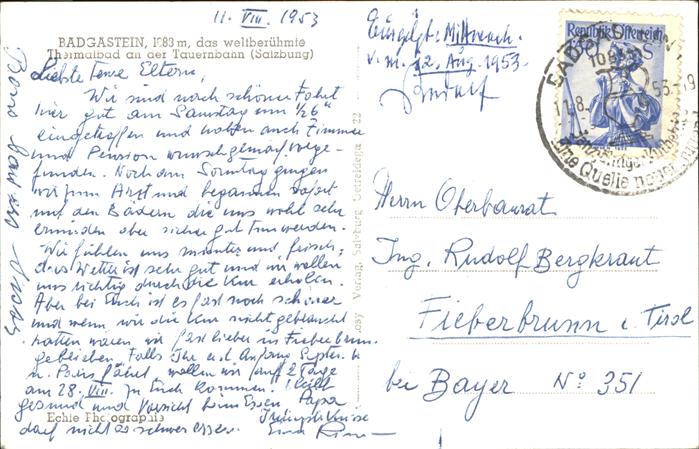 11. VIII. 1953
BADGASTEIN, 1083 m, das weltberühmte
Thermalbad an der Tauernbahn (Salzburg)
Liebste teure Eltern,
Wir sind nach schöner Fahrt
hier gut am Samstag um ½6ʰ
eingetroffen und haben auch Zimmer
und Pension wunschgemäß vorge-
funden. Noch am Sonntag gingen
wir zum Arzt und begannen sofort
mit den Bädern die uns wohl sehr
ermüden aber sicher gut tun werden.
Wir fühlen uns munter und frisch;
das Wetter ist sehr gut und wir wollen
uns richtig durch die Kur erholen.
Aber bei Euch ist es fast noch schöner
und wenn wir die Kur nicht gebraucht
hätten wären wir fast lieber in Fieberbrunn
geblieben. Falls Ihr erst Anfang Septem.
n. fährt, wollen wir auf 2 Tage
am 28. VIII. zu Euch kommen. Bleibt
gesund und Vorsicht beim Essen Papa
darf nicht so schwer essen.
Echte Photographie
Verlag, Salzburg Getreidegasse 22
Eingelgt: Mittwoch
v. m. 12. Aug. 1953.
Rudolf
Republik Österreich
S
11.8.53
eine Quelle neuer
Herrn Oberbaurat
Ing. Rudolf Bergkraut
Fieberbrunn i. Tirol
bei Bayer Nº 351